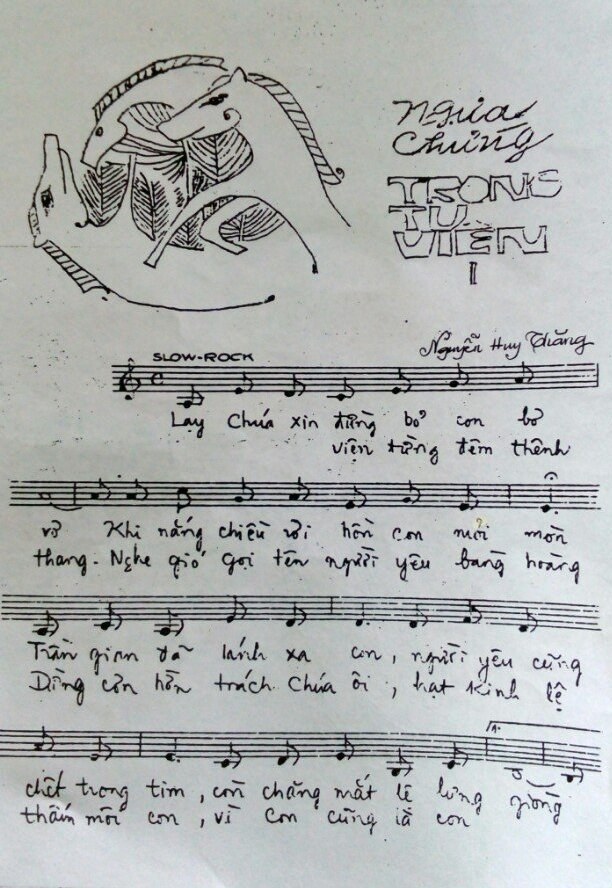 Ngựa
Chứng
TRONG
TU
VIỆN
I
Nguyễn Huy Thăng
SLOW-ROCK
Lạy Chúa xin đừng bỏ con bơ
viện từng đêm thênh
vơ Khi nắng chiều rơi hồn con mỏi mòn
thang. Nghe gió gọi tên người yêu bàng hoàng
Trần gian đã lánh xa con, người yêu cũng
Dòng hồn trách Chúa ôi, hạt kinh lệ
chết trong tim, còn chăng mắt lệ lưng giòng
thấm môi con, vì con cũng là con
1.